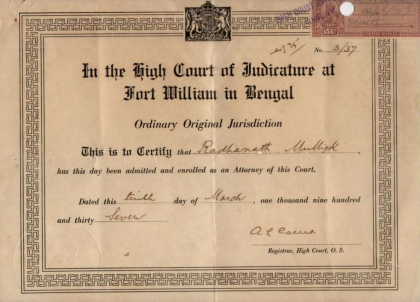 No. 3/37
In the High Court of Judicature at
Fort William in Bengal
Ordinary Original Jurisdiction
This is to Certify that Radhanath Mullick
has this day been admitted and enrolled as an Attorney of this Court.
Dated this tenth day of March, one thousand nine hundred
and thirty Seven
Registrar, High Court, O. S.